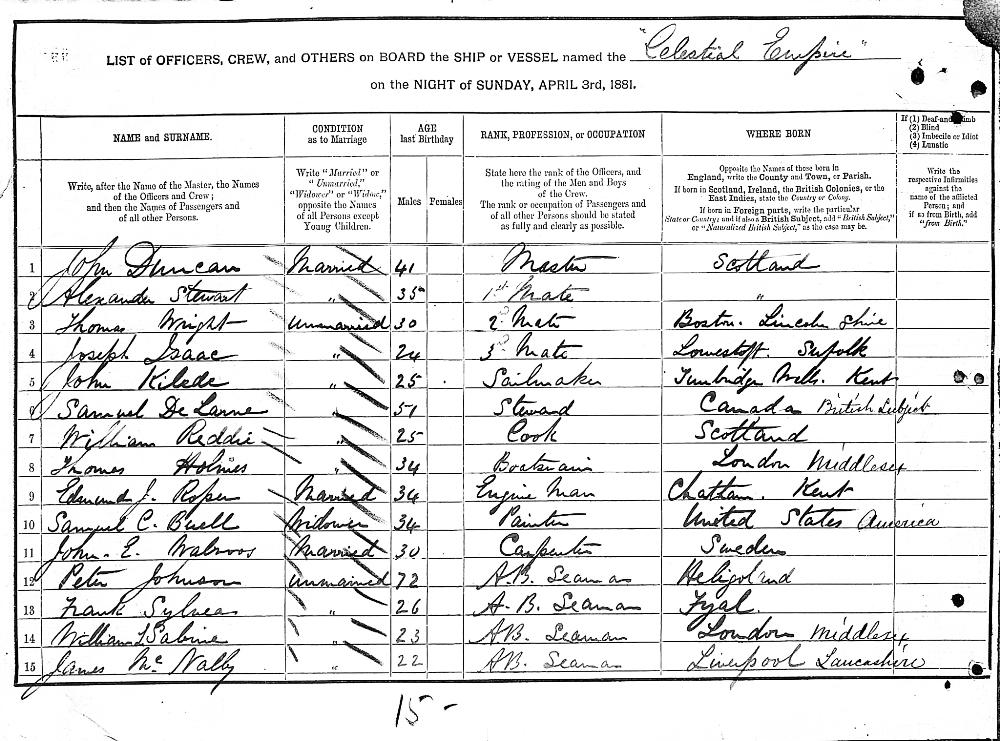 LIST of OFFICERS, CREW, and OTHERS on BOARD the SHIP or VESSEL named the "Celestial Empire"
on the NIGHT of SUNDAY, APRIL 3rd, 1881.
NAME and SURNAME.
Write, after the Name of the Master, the Names
of the Officers and Crew;
and then the Names of Passengers and
of all other Persons.
CONDITION
as to Marriage
Write "Married" or
"Unmarried,"
"Widower" or "Widow,"
opposite the Names
of all Persons except
Young Children.
AGE
last Birthday
Males Females
RANK, PROFESSION, or OCCUPATION
State here the rank of the Officers, and
the rating of the Men and Boys
of the Crew.
The rank or occupation of Passengers and
of all other Persons should be stated
as fully and clearly as possible.
WHERE BORN
Opposite the Names of those born in
England, write the County and Town, or Parish.
If born in Scotland, Ireland, the British Colonies, or the
East Indies, state the Country or Colony.
If born in Foreign parts, write the particular
State or Country; and if also a British Subject, add "British Subject,"
or "Naturalized British Subject," as the case may be.
If (1) Deaf-and-Dumb
(2) Blind
(3) Imbecile or Idiot
(4) Lunatic
Write the
respective Infirmities
against the
name of the afflicted
Person; and
if so from Birth, add
"from Birth."
1 John Duncan Married 41 Master Scotland
2 Alexander Stewart " 35 1st Mate "
3 Thomas Wright Unmarried 30 2d Mate Boston. Lincoln Shire
4 Joseph Isaac " 24 3d Mate Lowestoft. Suffolk
5 John Kilede " 25 Sailmaker Tunbridge Wells. Kent
6 Samuel De Larne " 51 Steward Canada British Subject
7 William Reddie " 25 Cook Scotland
8 Thomas Holmes " 34 Boatswain London Middlesex
9 Edmund J. Roper Married 34 Engine Man Chatham. Kent
10 Samuel C. Buell Widower 34 Painter United States America
11 John. E. Walroos Married 30 Carpenter Sweden
12 Peter Johnson Unmarried 72 A.B. Seaman Heligoland
13 Frank Sylvea " 26 A.B. Seaman Fyal.
14 William Sabine " 23 AB. Seaman London Middlesex
15 James Mc Nally " 22 AB. Seaman Liverpool Lancashire
15 -